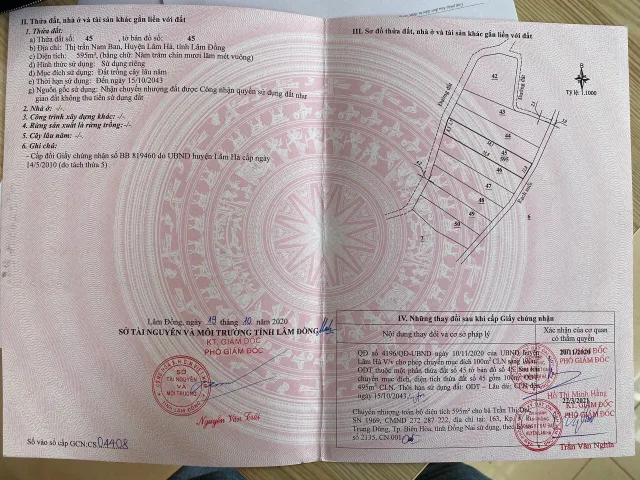 II. Thửa đất, nhà ở và tài sản khác gắn liền với đất
1. Thửa đất:
a) Thửa đất số: 45 , tờ bản đồ số: 45
b) Địa chỉ: Thị trấn Nam Ban, Huyện Lâm Hà, tỉnh Lâm Đồng
c) Diện tích: 595m², (bằng chữ: Năm trăm chín mươi lăm mét vuông)
d) Hình thức sử dụng: Sử dụng riêng
đ) Mục đích sử dụng: Đất trồng cây lâu năm
e) Thời hạn sử dụng: Đến ngày 15/10/2043
g) Nguồn gốc sử dụng: Nhận chuyển nhượng đất được Công nhận quyền sử dụng đất như
giao đất không thu tiền sử dụng đất
2. Nhà ở: -/-.
3. Công trình xây dựng khác: -/-.
4. Rừng sản xuất là rừng trồng: -/-.
5. Cây lâu năm: -/-.
6. Ghi chú:
- Cấp đổi Giấy chứng nhận số BB 819460 do UBND huyện Lâm Hà cấp ngày
14/5/2010 (do tách thửa 5)
Lâm Đồng, ngày 19 tháng 10 năm 2020
SỞ TÀI NGUYÊN VÀ MÔI TRƯỜNG TỈNH LÂM ĐỒNG
KT. GIÁM ĐỐC
PHÓ GIÁM ĐỐC
SỞ
TÀI NGUYÊN
VÀ
MÔI TRƯỜNG
Nguyễn Văn Trãi
Số vào sổ cấp GCN:CS 04408
III. Sơ đồ thửa đất, nhà ở và tài sản khác gắn liền với đất
Tỷ lệ 1:1000
Đường đất
Đường đất
42
43
44
45
595
46
47
48
49
50
7
6
Rạch suối
IV. Những thay đổi sau khi cấp Giấy chứng nhận
Nội dung thay đổi và cơ sở pháp lý
Xác nhận của cơ quan
có thẩm quyền
QĐ số 4196/QĐ-UBND ngày 10/11/2020 của UBND huyện
Lâm Hà V/v cho phép chuyển mục đích 100m² CLN sang
ODT thuộc một phần thửa đất số 45 tờ bản đồ số 45. Sau khi
chuyển mục đích, diện tích thửa đất số 45 gồm 100m² ODT
495m² CLN. Thời hạn sử dụng đất: ODT - Lâu dài; CLN đến
15/10/2043
20/11/2020
GIÁM ĐỐC
PHÓ GIÁM ĐỐC
Hồ Thị Minh Hằng
Chuyển nhượng toàn bộ diện tích 595m² cho bà Trần Thị
SN 1969, CMND 272 287 222, địa chỉ: 163, Kp
Trung Dũng, Tp. Biên Hòa, tỉnh Đồng Nai sử dụng, theo
số 2135, CN.001
22/3/2021
KT. GIÁM ĐỐC
PHÓ GIÁM ĐỐC
Trần Văn Nghĩa